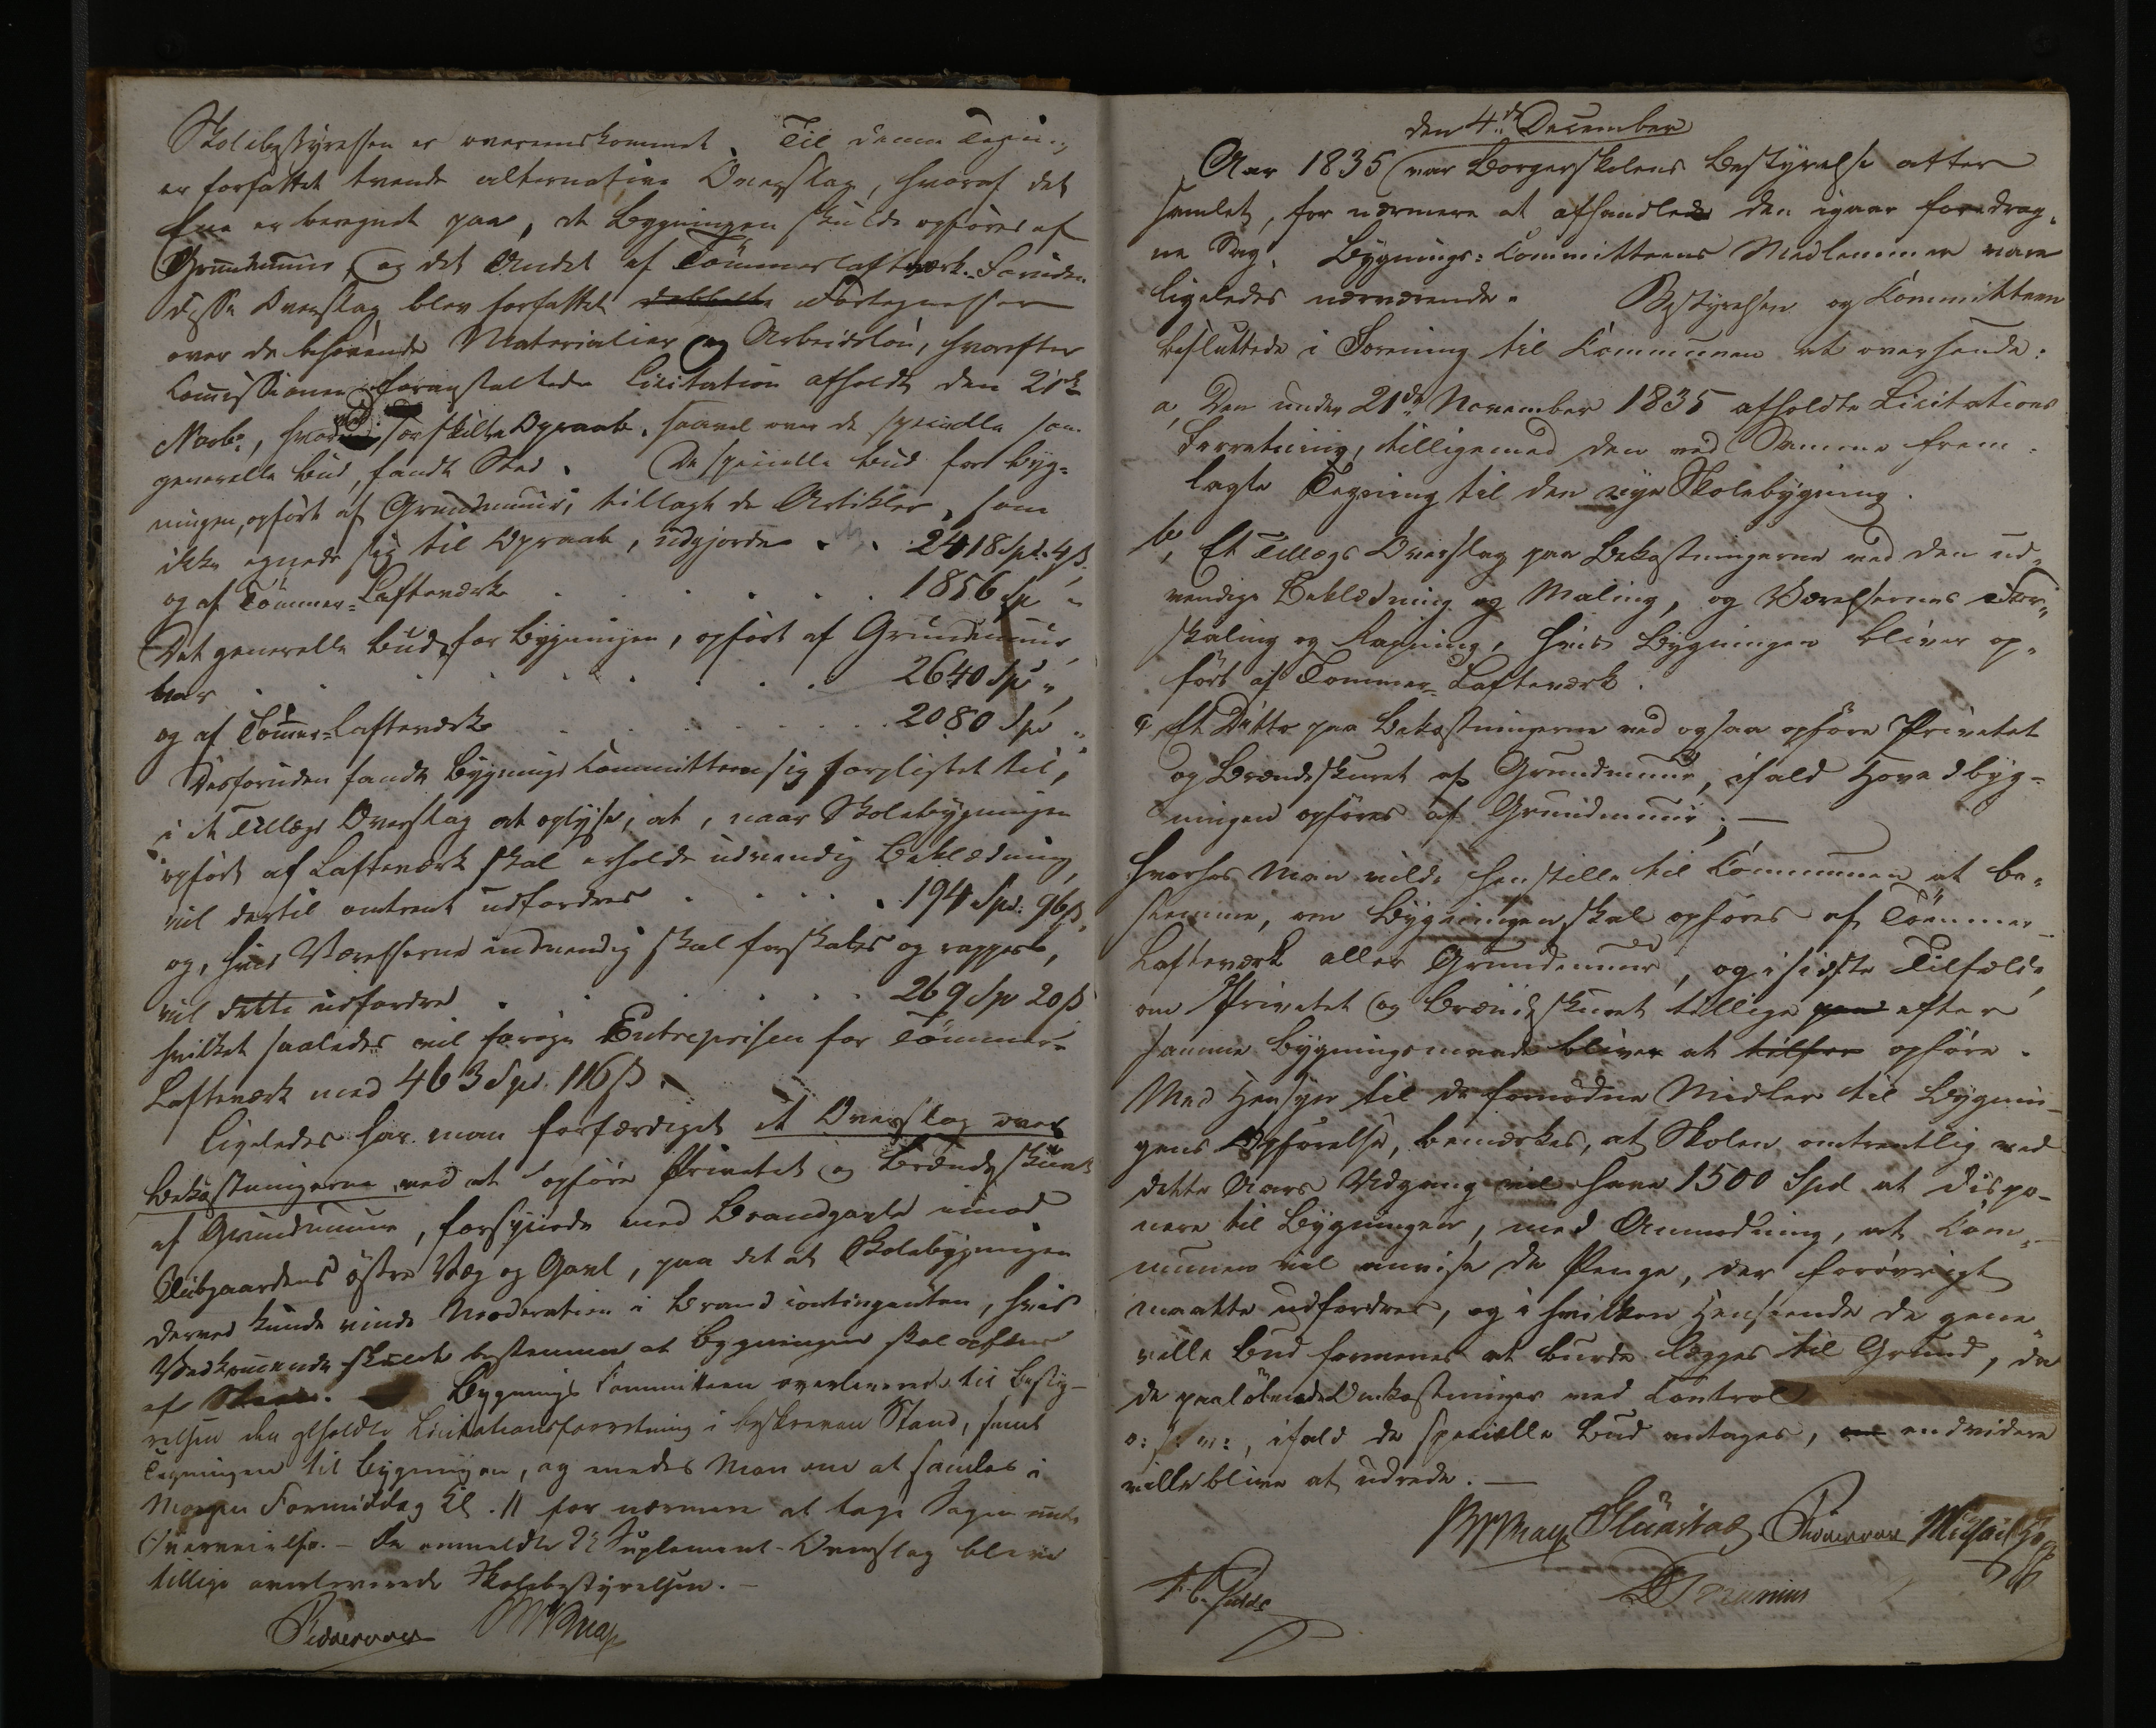 Skolebestyrelsen er overeenskommet. Til denne Tegning
er forfattet tvende alternative Overslag, hvoraf det
Ene er beregnet paa, at Bygningen skulde opføres af
Grundmuur, og det Andet af Tömmerlaftværk. Foruden
disse Overslag blev forfattet dobbelte Fortegnelser
over de behövende Materialier og Arbeidslön, hvorefter
Comissionen foranstaltede Licitation afholdt den 21de
Novbr, hvorved særskilte Opraab, saavel over de specielle som
generelle Bud, fandt Sted. De specielle Bud for Byg=
ningen, opfört af Grundmuur, tillagt de Artikler, som
ikke egnede sig til Opraab, udgjorde . . 2418 Spd. 4 ß.
og af Tömmer=Lafteværk . . . . . 1856 Sp „
Det generelle Bud for Bygningen, opfört af Grundmuur,
var . . . . . . . . 2640 Spd „
og af Tömmer=Lafteværk . . . . . 2080 Spd „
Desforuden fandt Bygnings Committeen sig forpligtet til,
i et Tillægs Overslag at oplyse, at, naar Skolebygningen
opfört af Lafteværk skal erholde udvendig Beklædning,
vil dertil omtrent udfordres . . . . 194 Spd. 96 ß,
og, hvis Værelserne indvendig skal forskales og rappes,
vil dette udfordre . . . . . 269 Sp 20 ß
hvilket saaledes vil forøge Entreprisen for Tömmer=
Lafteværk med 463 Spd. 116 ß.
Ligeledes har man forfærdiget et Overslag over
Bekostningerne ved at opföre Privetet og Brændeskuret
af Grundmuur, forsynede med Brandgavle imod
Clubgaardens östre Væg og Gavl, paa det at Skolebygningen
derved kunde vinde Moderation i Brandcontingenten, hvis
Vedkommende skulde bestemme at Bygningen skal opføres
af Steen. Bygnings Committeen overleverede til Besty-
relsen den afholdte Licitationsforretning i beskreven Stand, samt
Tegningen til Bygningen, og enedes Man om at samles i
Morgen Formiddag Kl. 11 for nærmere at tage Sagen under
Overveielse. – De anmeldte 2de Suplement-Overslag blev
tillige overleverede Skolebestyrelsen. –
den 4de December
Aar 1835 var Borgerskolens Bestyrelse atter
samlet, for nærmere at afhandle den igaar foredrag-
ne Sag. Bygnings=Committeens Medlemmer vare
ligeledes nærværende. Bestyrelsen og Committeen
besluttede i Forening til Communen at oversende:
a, Den under 21de November 1835 afholdte Licitations
Forretning, tilligemed den ved Samme frem-
lagte Tegning til den nye Skolebygning.
b, Et Tillægs Overslag paa Bekostningerne ved den ud-
vendige Beklædning og Maling, og Værelsernes For-
skaling og Rapning, hvis Bygningen bliver op-
fört af Tömmer=Lafteværk.
c, Et Ditto paa Bekostningerne ved ogsaa opföre Privetet
og Brændeskuret af Grundmuur, ifald Hovedbyg=
ningen opføres af Grundmuur; —
hvorhos Man vilde henstille til Communen at be-
stemme, om Bygningen skal opføres af Tömmer-
Lafteværk eller Grundmuur, og i sidste Tilfælde,
om Privetet og Brændeskuret tillige paa efter
samme Bygningsmaade bliver at tilføre opföre.
Med Hensyn til de fornødne Midler til Bygnin-
gens Opförelse, bemærkes, at Skolen omtrentlig ved
dette Aars Udgang vil have 1500 Spd at dispo-
nere til Bygningen, med Anmodning, at Com-
munen vil anvise de Penge, der forövrigt
maatte udfordres, og i hvilken Henseende de gene
relle Bud formenes at burde lægges til Grund, da
de paalöbende Omkostninger ved Control
o: s: v:, ifald de specielle Bud antages, endvidere
ville blive at udrede. —